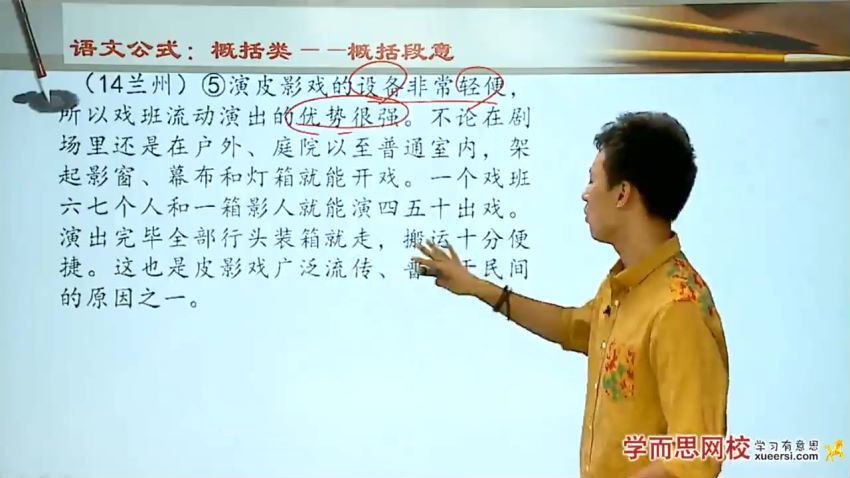 语文公式：概括类——概括段意
（14兰州）⑤演皮影戏的设备非常轻便，
所以戏班流动演出的优势很强。不论在剧
场里还是在户外、庭院以至普通室内，架
起影窗、幕布和灯箱就能开戏。一个戏班
六七个人和一箱影人就能演四五十出戏。
演出完毕全部行头装箱就走，搬运十分便
捷。这也是皮影戏广泛流传、普 民间
的原因之一。
学而思网校 学习有意思
xueersi.com